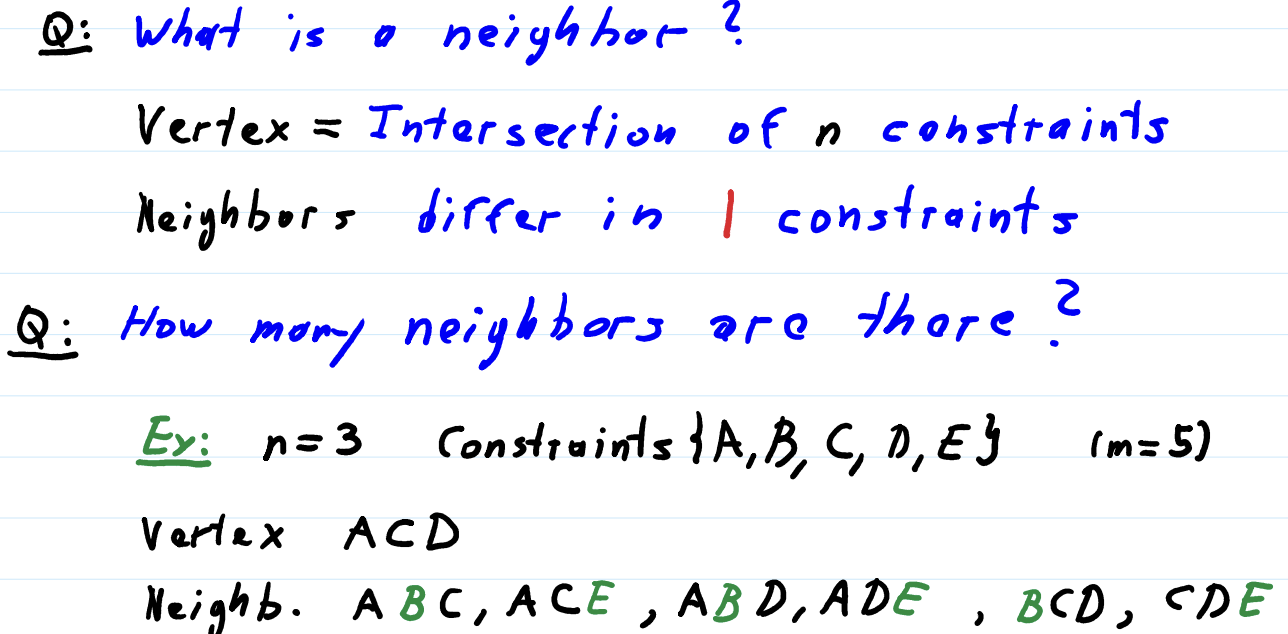 Q: What is a neighbor?
Vertex = Intersection of n constraints
Neighbors differ in 1 constraints
Q: How many neighbors are there?
Ex: n=3 Constraints {A, B, C, D, E} (m=5)
Vertex ACD
Neighb. ABC, ACE, ABD, ADE, BCD, CDE